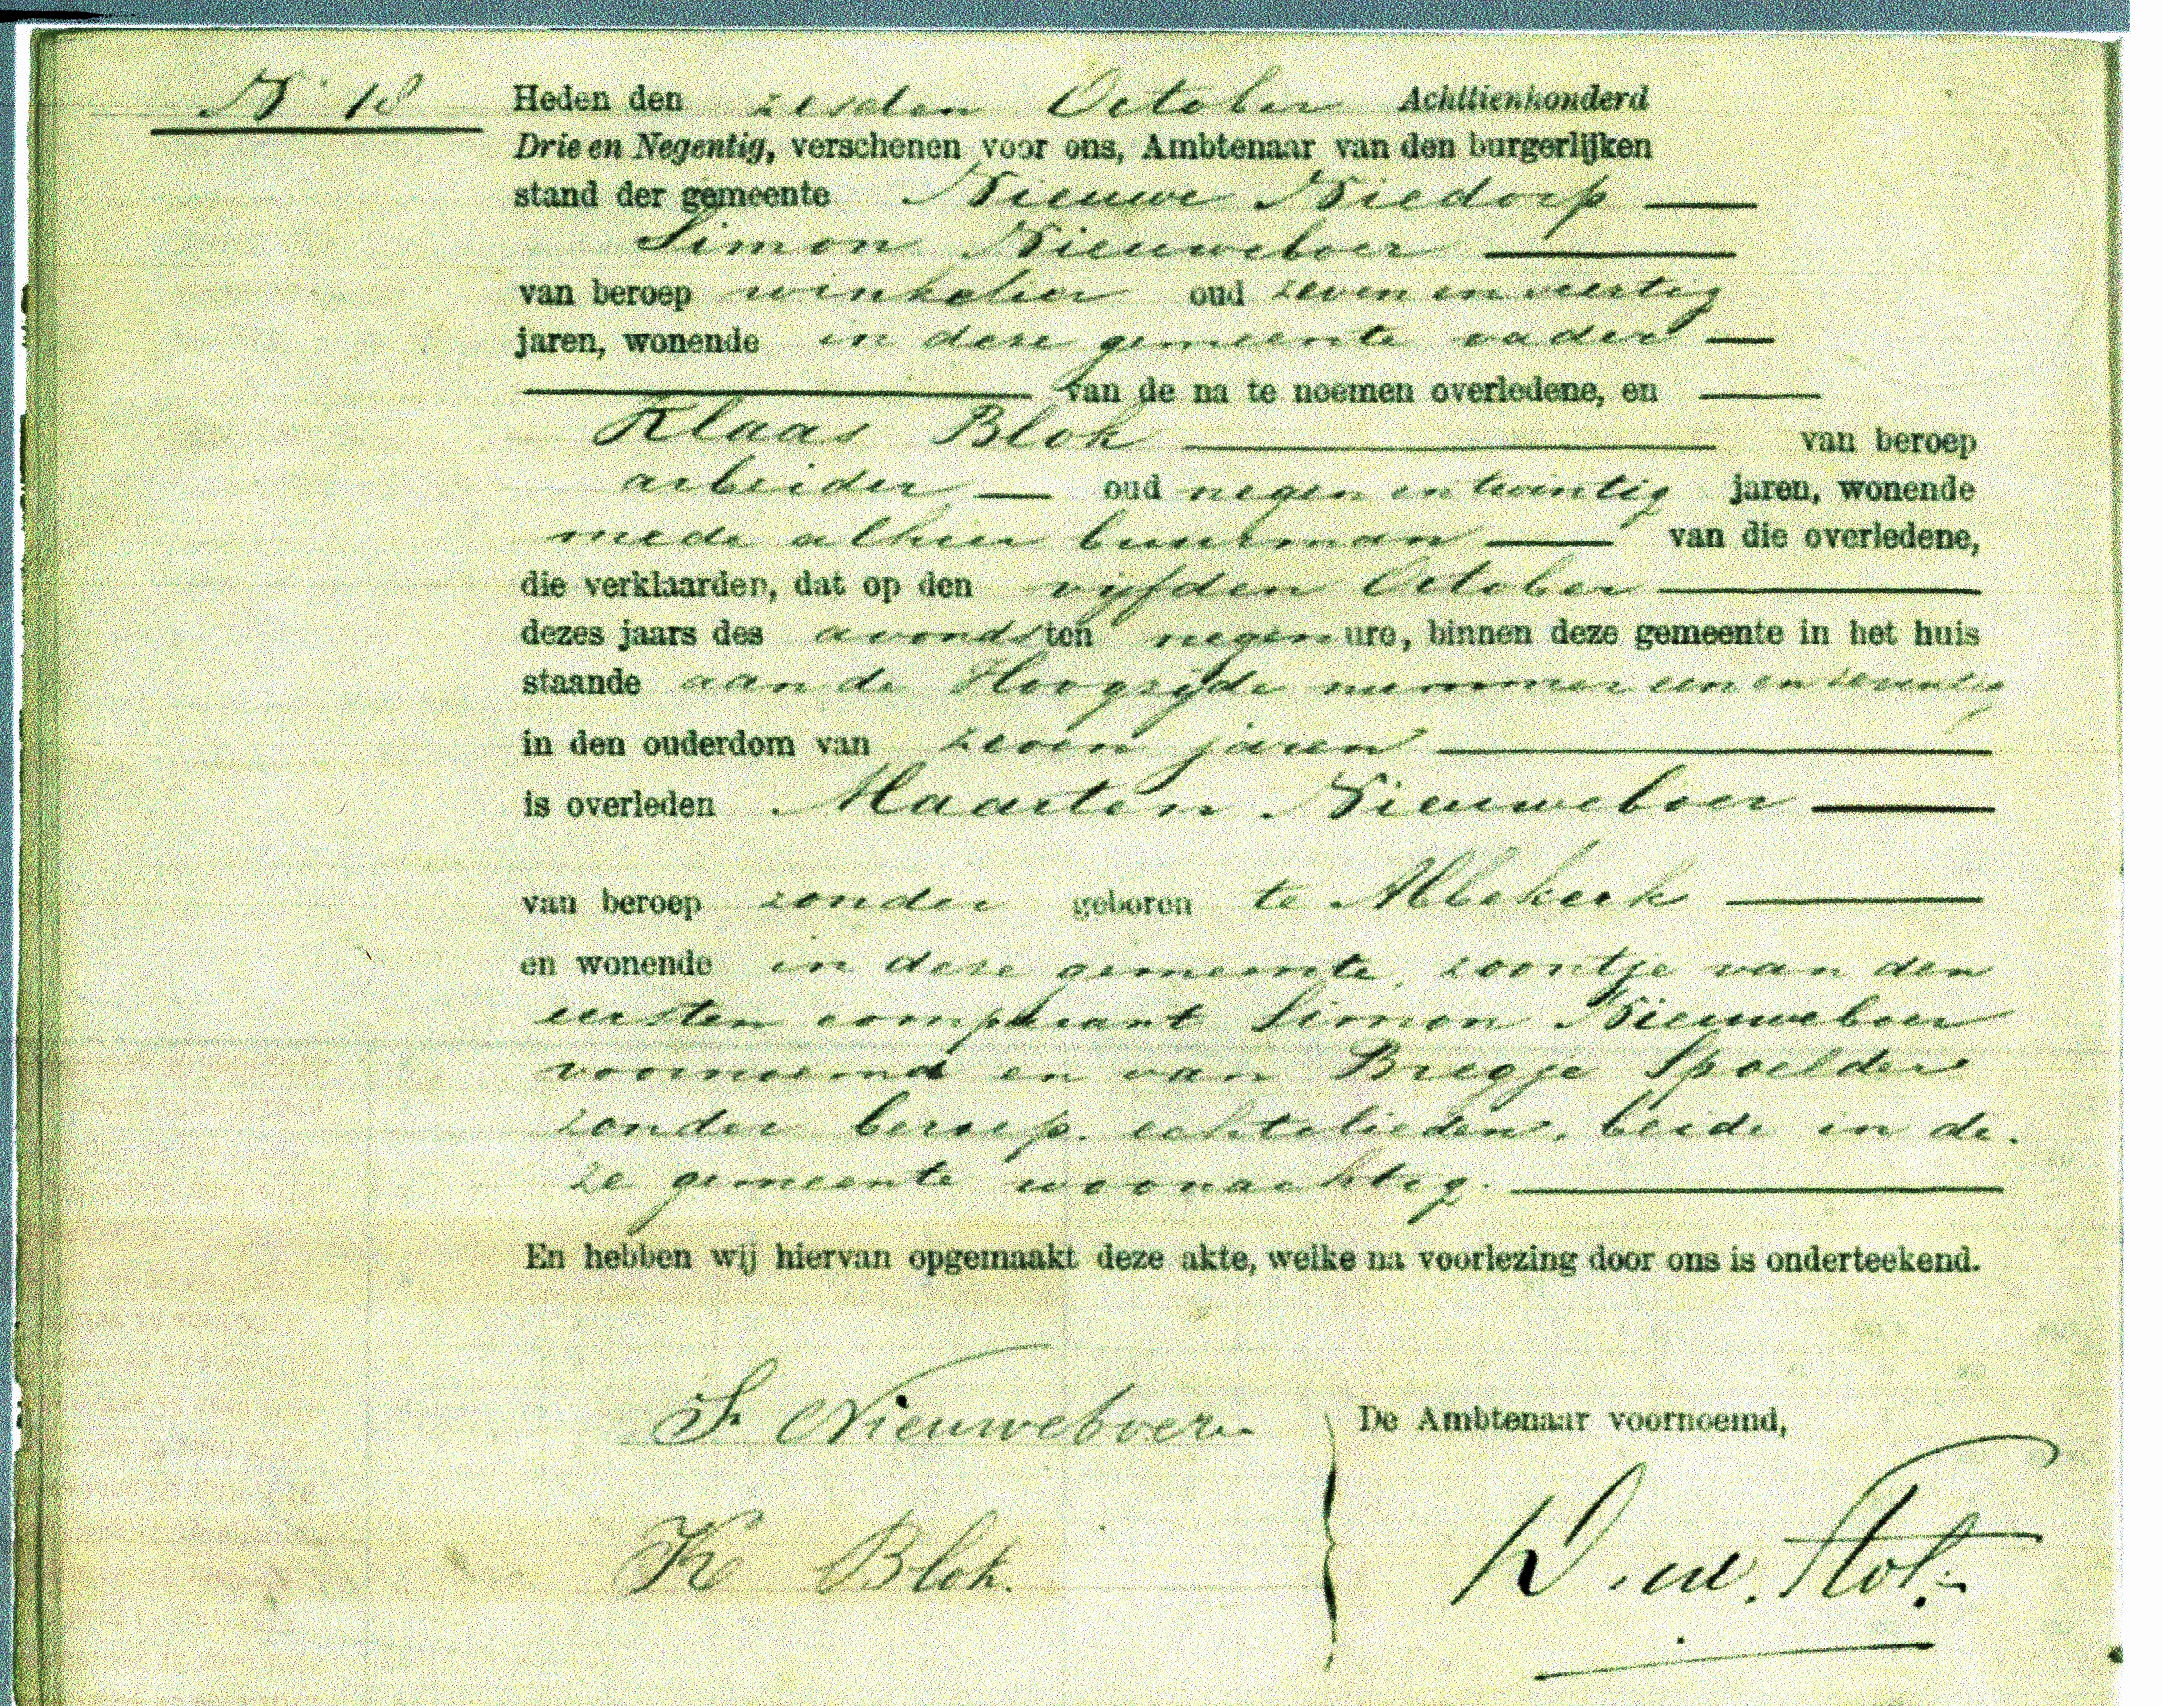 No 18
Heden den zesden October Achttienhonderd
Drie en Negentig, verschenen voor ons, Ambtenaar van den burgerlijken
stand der gemeente Nieuwe Niedorp
Simon Nieuweboer
van beroep winkelier oud zeven en veertig
jaren, wonende in deze gemeente vader
van de na te noemen overledene, en
Klaas Blok van beroep
arbeider oud negen en twintig jaren, wonende
mede alhier buurman van die overledene,
die verklaarden, dat op den vijfden October
dezes jaars des avonds ten negen ure, binnen deze gemeente in het huis
staande aan de Hoogzijde nummer een en zeventig
in den ouderdom van zeven jaren
is overleden Maarten Nieuweboer
van beroep zonder geboren te Abbekerk
en wonende in deze gemeente, zoontje van den
eersten comparant Simon Nieuweboer
voornoemd en van Bregje Spoelder
zonder beroep, echtelieden, beide in de-
ze gemeente woonachtig.
En hebben wij hiervan opgemaakt deze akte, welke na voorlezing door ons is onderteekend.
S. Nieuweboer
De Ambtenaar voornoemd,
K Blok.